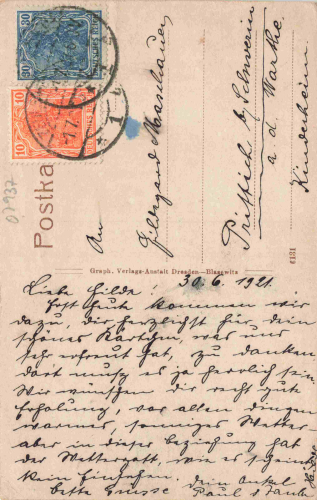 30
30
10
10
1
1
Postka
01937
An
Hildegard
Prittisch b/ Schwerin
a. d. Warthe
Kinderheim
6131
Graph. Verlags-Anstalt Dresden—Blasewitz
30.6.1921.
Liebe Hilde!
Erst heute kommen wir
dazu, dir herzlichst für dein
schönes Kärtchen, was uns
sehr erfreut hat, zu danken
dort muss es ja herrlich sein
Wir wünschen dir recht gute
Erholung, vor allen dingen
warmes, sonniges Wetter
aber in dieser beziehung hat
der Wettergott, wie es scheint
kein Einsehen. Dein Onkel
beste Grüsse Paul Tante